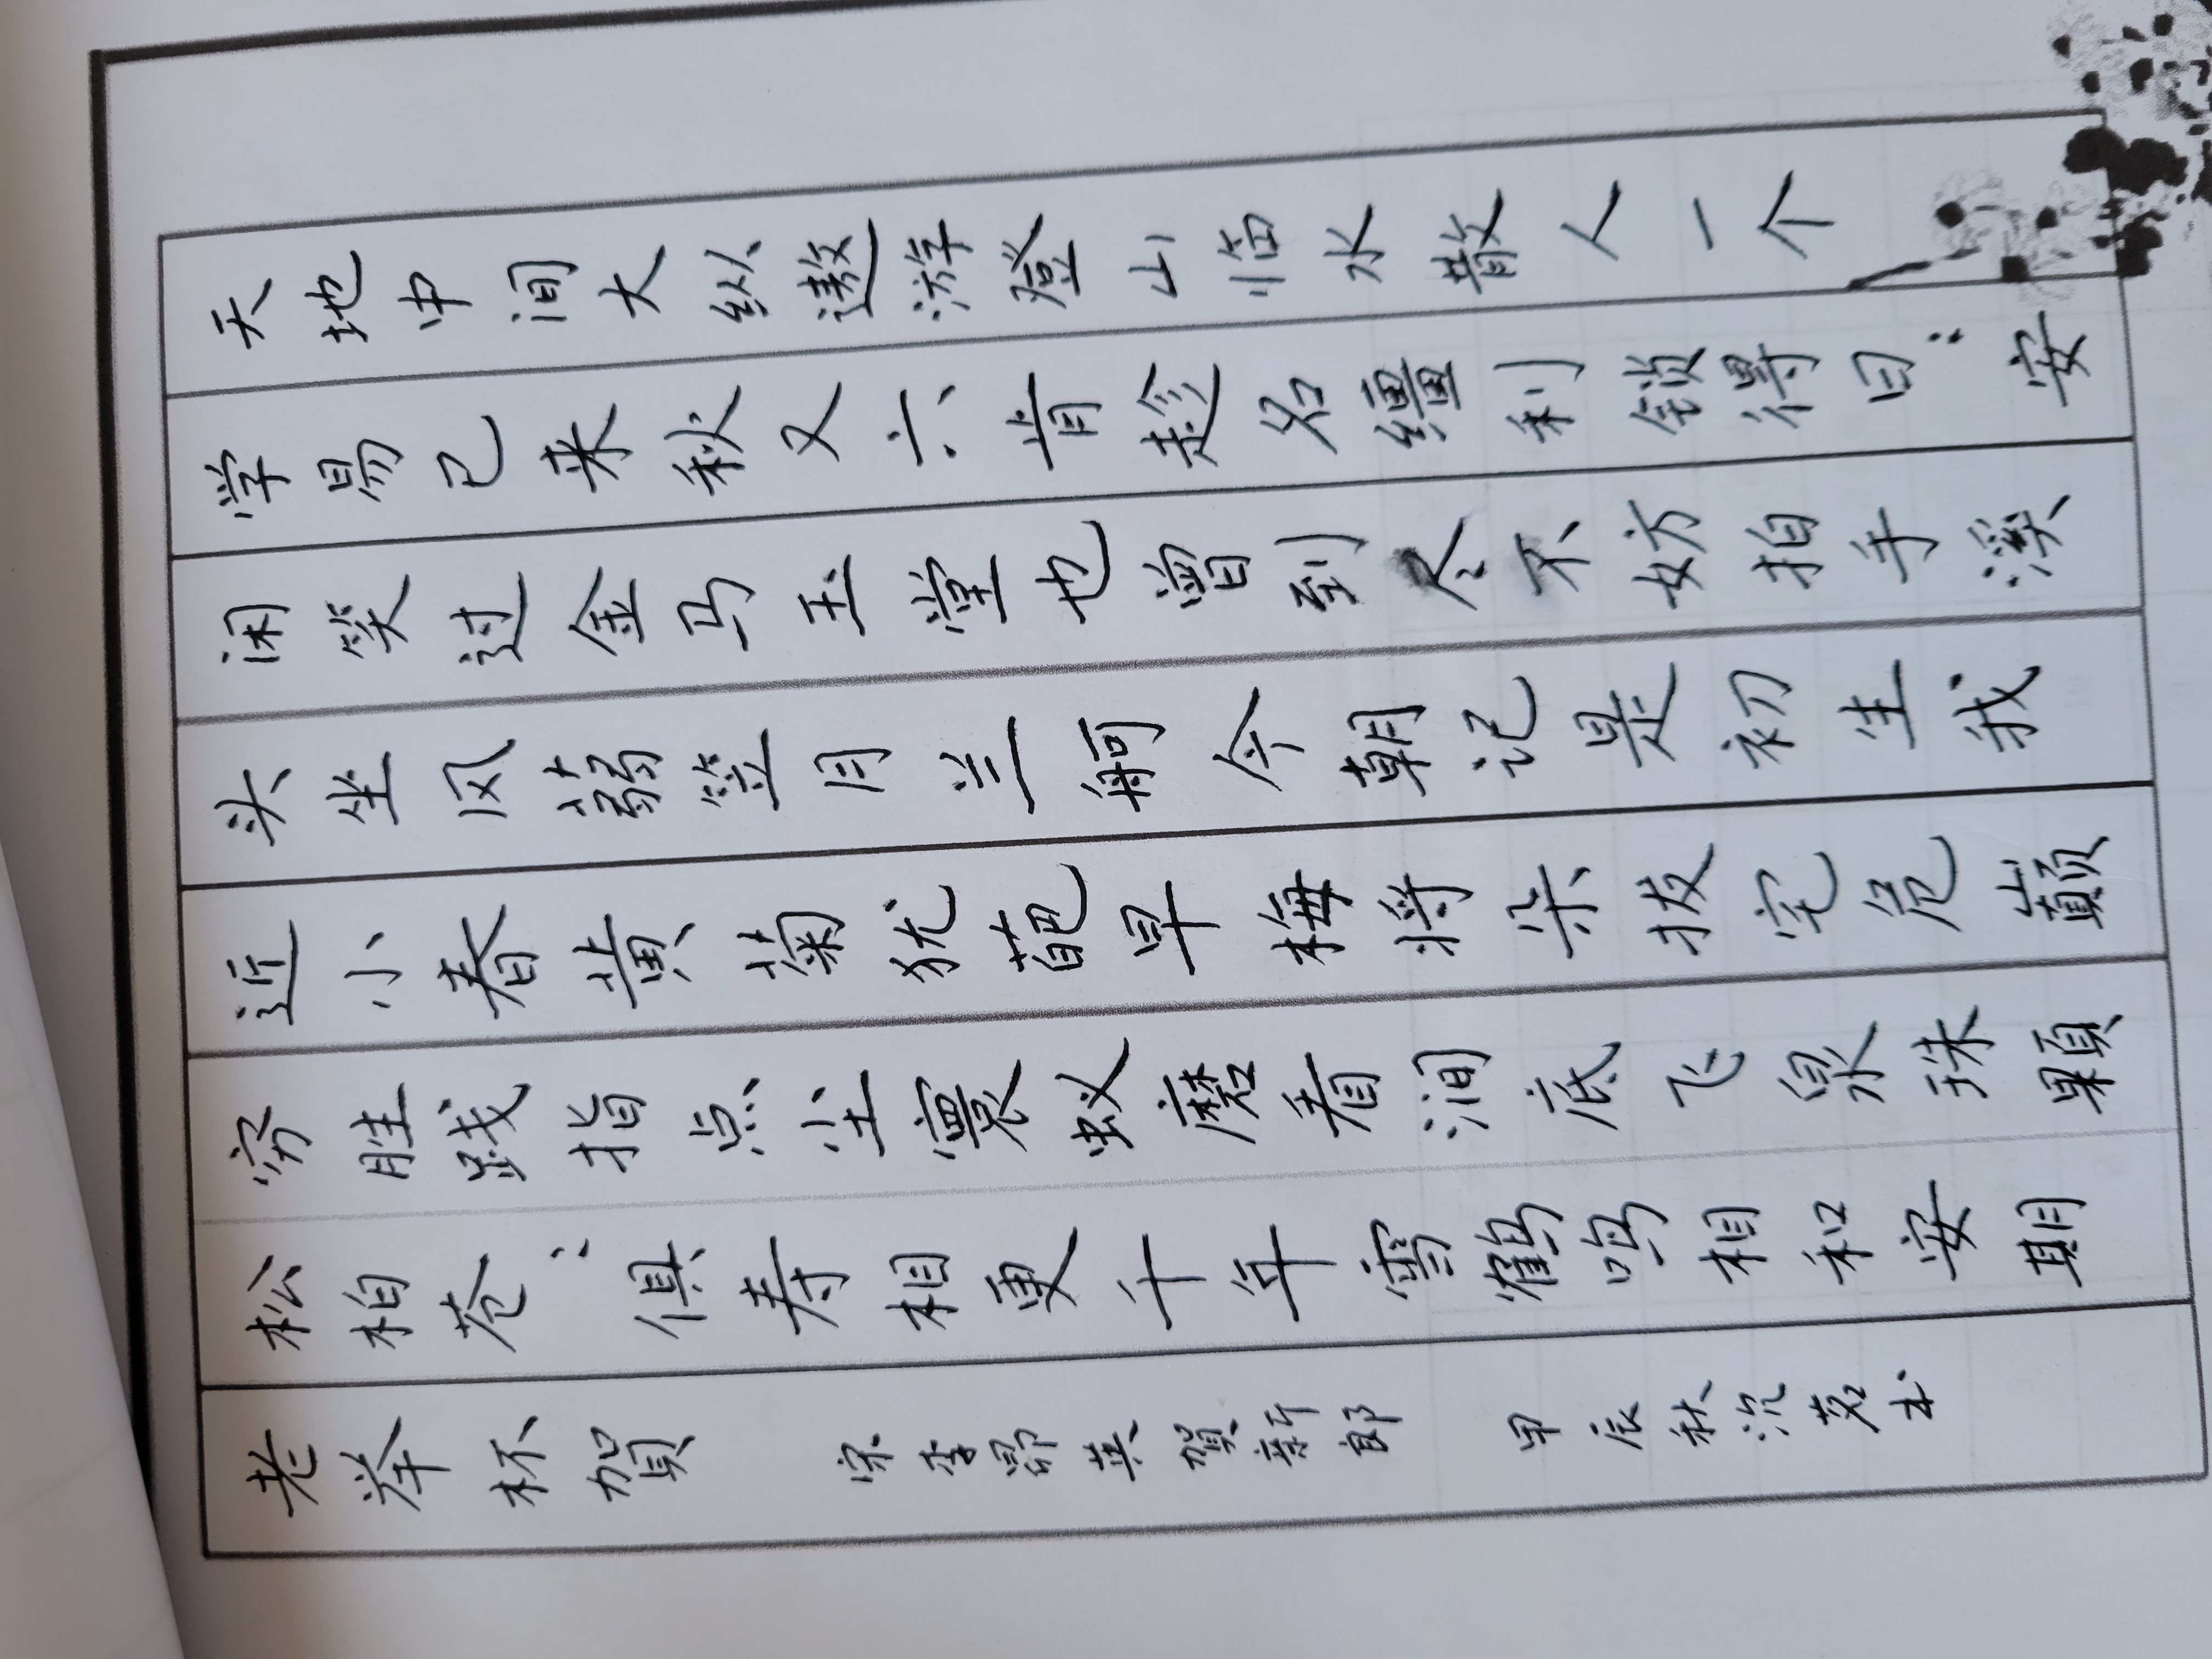 天地中间大纵遨游登山临水散人一个
学易已来秋又六肯趁名缰利锁得日：安
闲笑过金马玉堂也曾到尽不妨拍手溪
头坐风蒻笠月兰舸今朝记是初生我
近小春黄菊犹葩早梅将朵拔宅危巅
穷胜践指点尘寰蚁磨看涧底飞泉珠顆
松柏苍：俱寿相更千年雪鹤鸣相和安期
老举杯賀 宋李昴英賀新郎 甲辰秋沉茗书